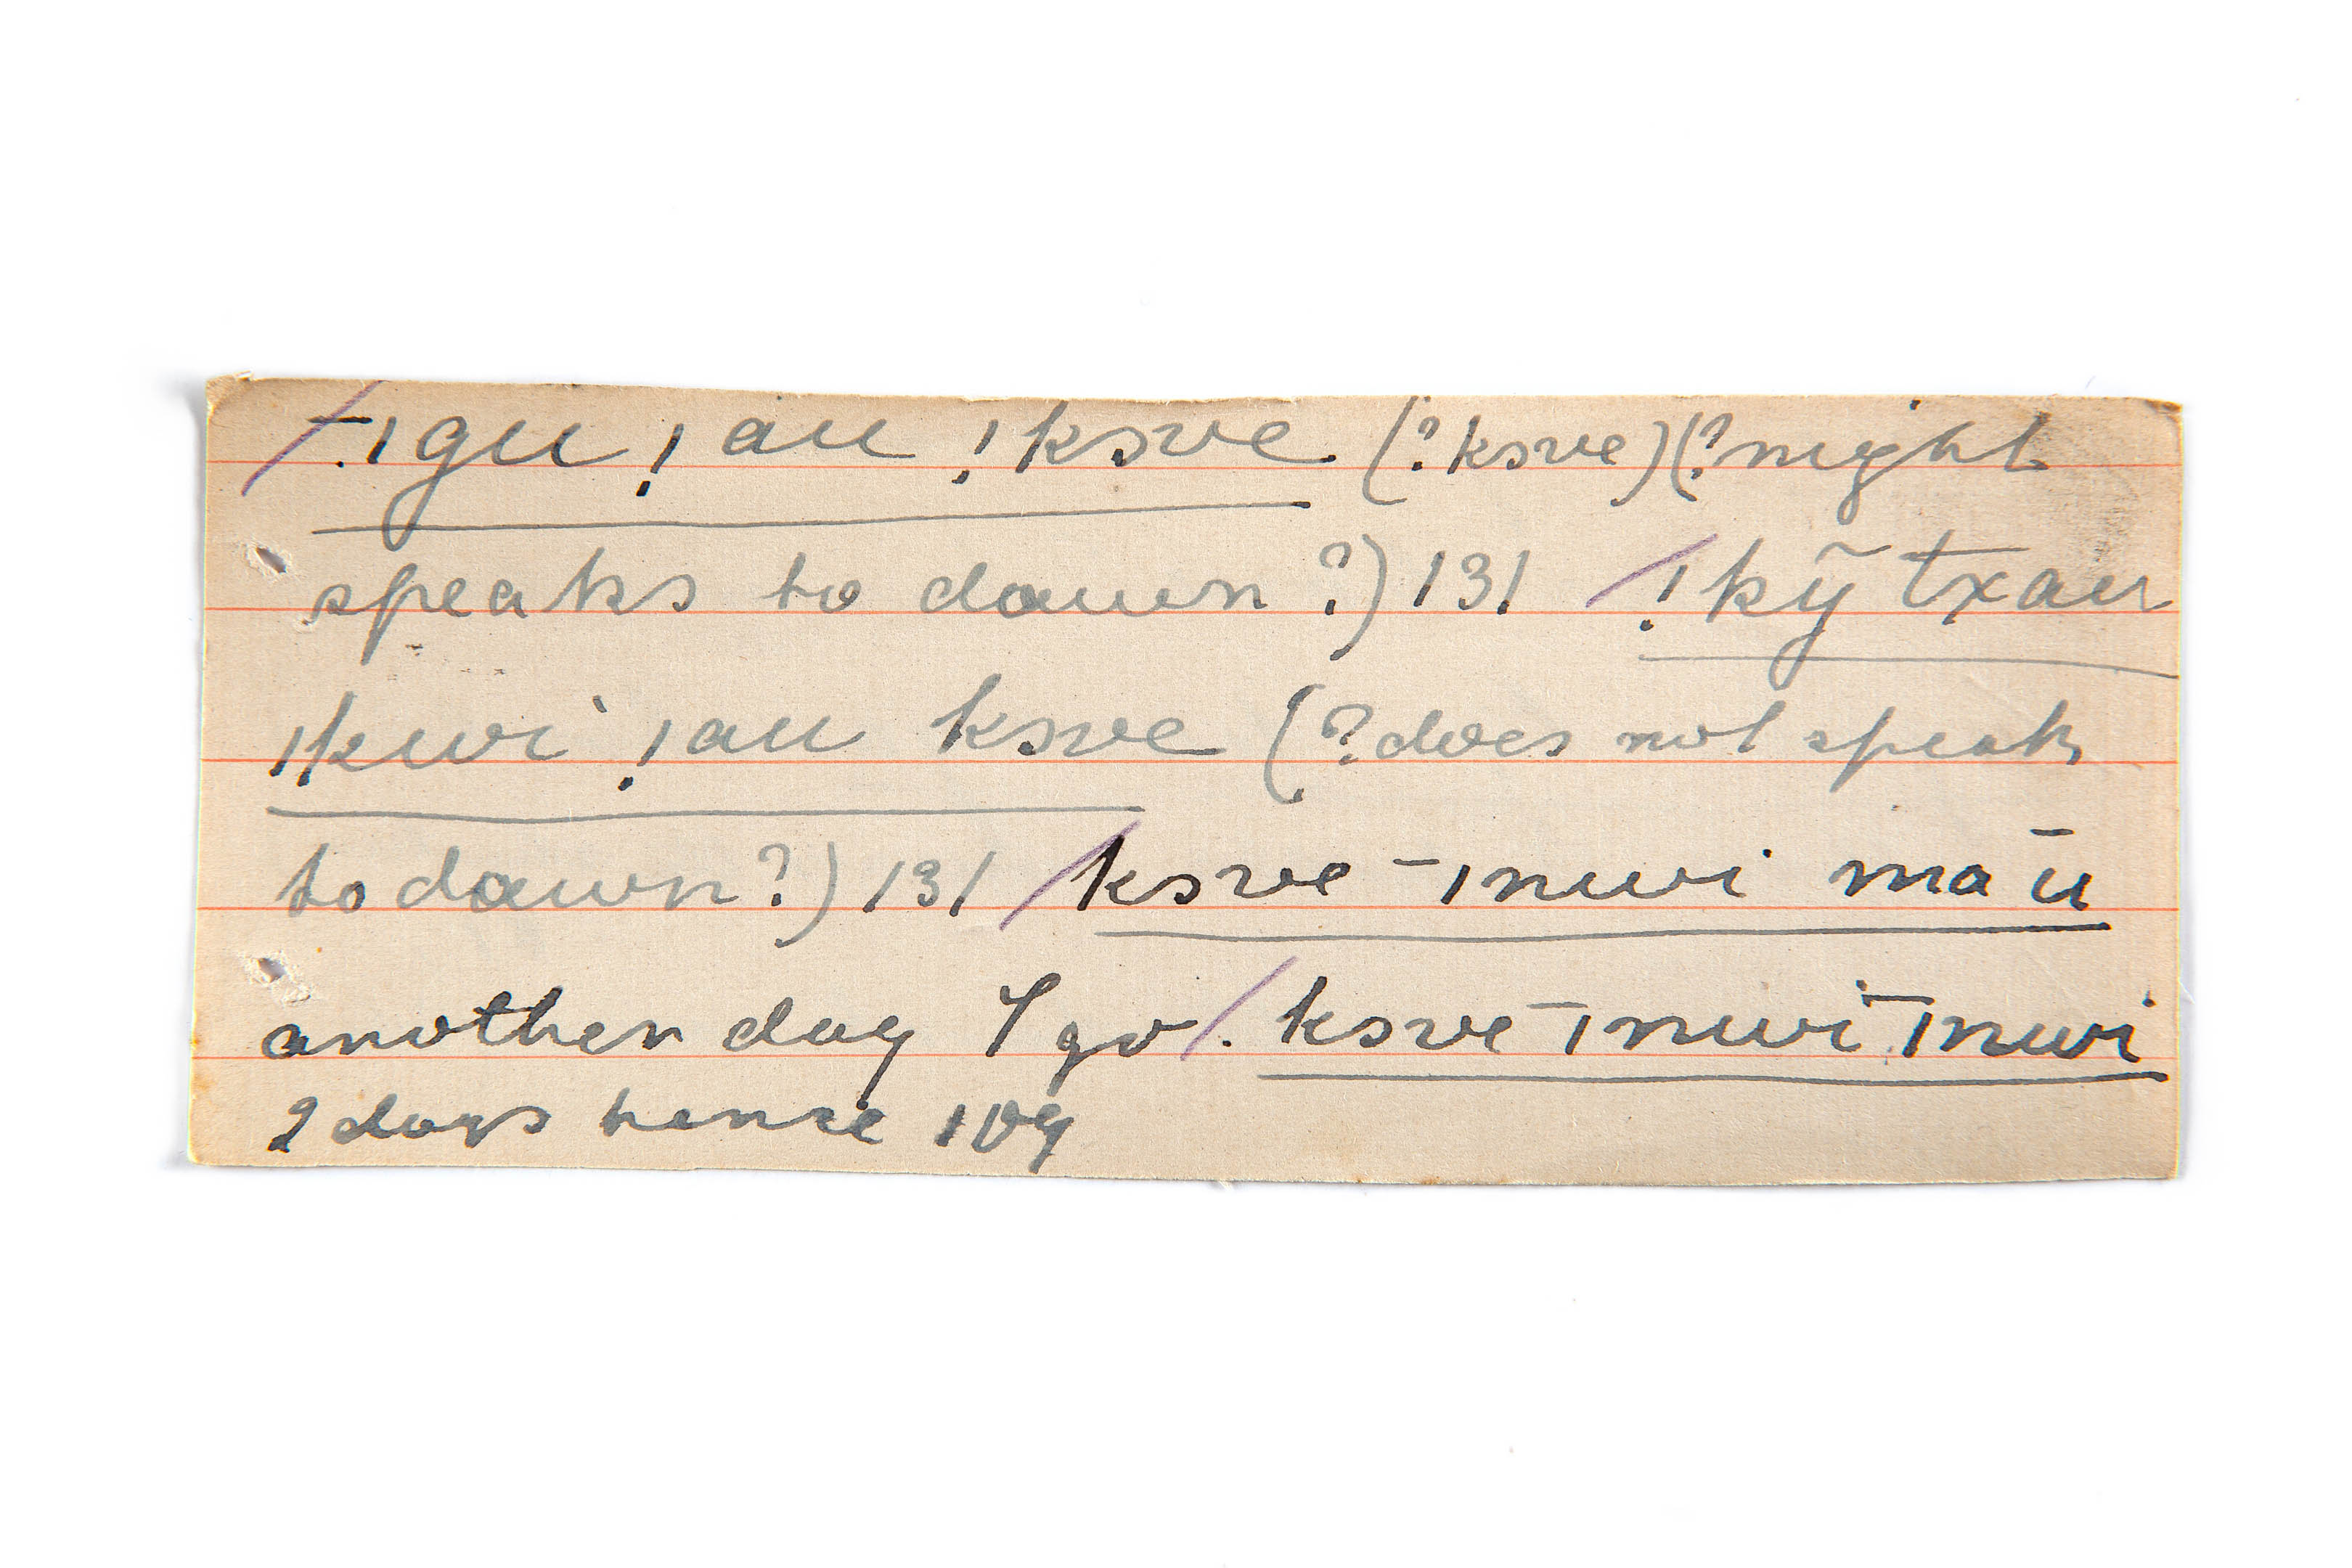 / – . ǀgu ! au ! ksve. (? ksve) (? night
speaks to dawn ?) 131 / ! kỹ txau
ǀkwi ! au ksve (? does not speak
to dawn ?) 131 / ksve ¯ǀnwi ma ū
another day I go /. ksve ¯ǀnwi ¯ǀnwi
2 days hence 109